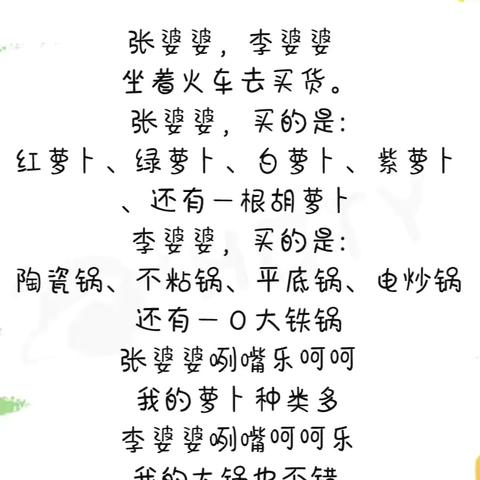 张婆婆，李婆婆
坐着火车去买货。
张婆婆，买的是：
红萝卜、绿萝卜、白萝卜、紫萝卜
、还有一根胡萝卜
李婆婆，买的是：
陶瓷锅、不粘锅、平底锅、电炒锅
还有一口大铁锅
张婆婆咧嘴乐呵呵
我的萝卜种类多
李婆婆咧嘴呵呵乐
我的大锅也不错